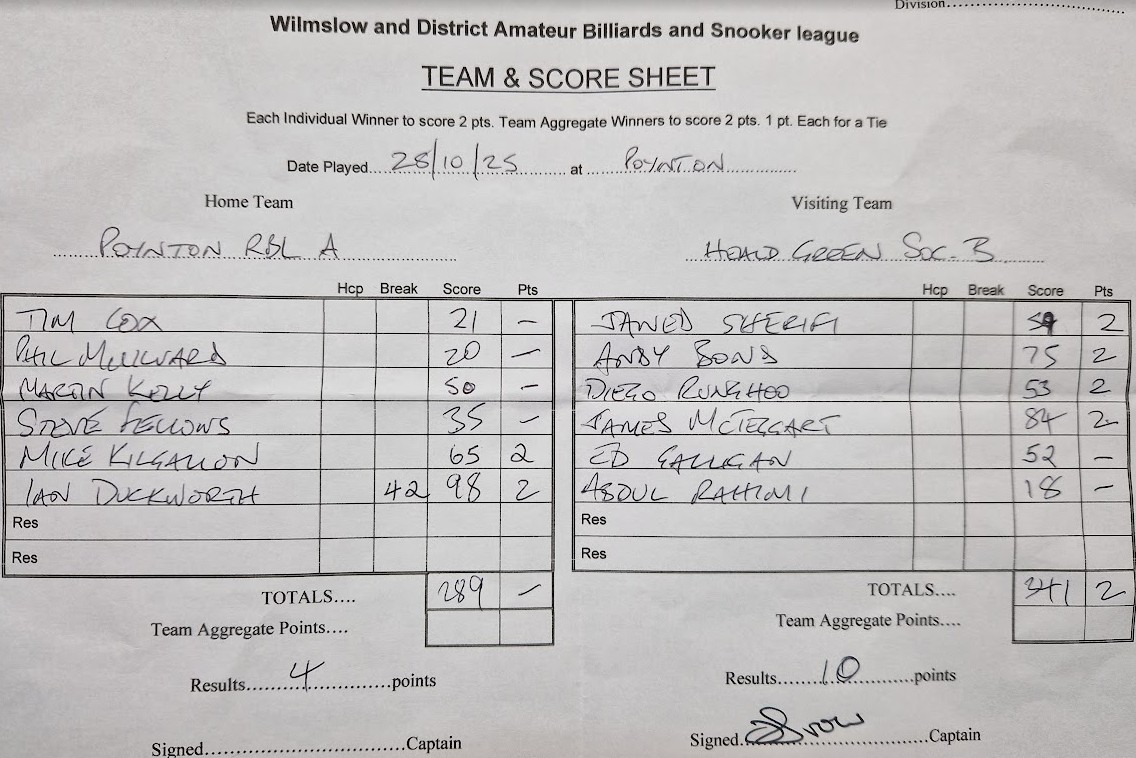 Division
Wilmslow and District Amateur Billiards and Snooker league
TEAM & SCORE SHEET
Each Individual Winner to score 2 pts. Team Aggregate Winners to score 2 pts. 1 pt. Each for a Tie
Date Played 28/10/25 at POYNTON
Home Team Visiting Team
POYNTON RBL A HEALD GREEN SOC. B
Hcp Break Score Pts Hcp Break Score Pts
TIM COX 21 — JAWED SHERIFI 59 2
PHIL MILLWARD 20 — ANDY BOND 75 2
MARTIN KELLY 50 — DIEGO RUNGHOO 53 2
STEVE FELLOWS 35 — JAMES MCTEGGART 84 2
MIKE KILGALLON 65 2 ED GALLIGAN 52 —
IAN DUCKWORTH 42 98 2 ABDUL RAHIMI 18 —
Res Res
Res Res
TOTALS.... 289 — TOTALS.... 341 2
Team Aggregate Points.... Team Aggregate Points....
Results 4 points Results 10 points
Signed Captain Signed Captain